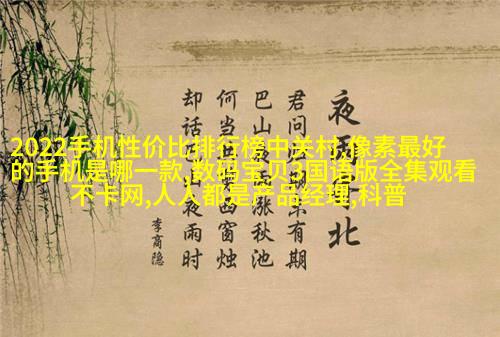 2022手机性价比排行榜中关村,像素最好
的手机是哪一款,数码宝贝3国语版全集观看
不卡网,人人都是产品经理,科普
夜雨北
君问未有期
巴山涨秋池
何当西窗烛
却话夜雨时
李商隐